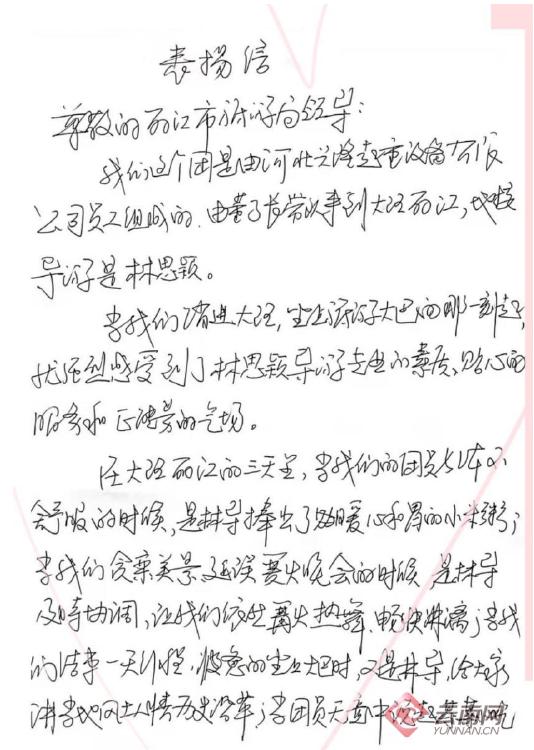 表扬信
尊敬的丽江市旅游局领导：
我们这个团是由河北兴隆起重设备有限
公司员工组成的，由董事长带队来到大理丽江，地接
导游是林思颖。
当我们踏进大理，坐上旅游大巴的那一刻起，
就强烈感受到了林思颖导游专业的素质、贴心的
服务和正能量的气场。
在大理丽江的三天里，当我们的团员身体不
舒服的时候，是林导捧出了如暖心和胃的小米粥；
当我们贪恋美景延误篝火晚会的时候，是林导
及时协调，让我们依然篝火热舞、畅快淋漓；当我
们结束一天行程，疲惫的坐上大巴时，又是林导，给大家
讲当地风土人情历史沿革；当团员无意中说起
云南网
YUNNAN.CN